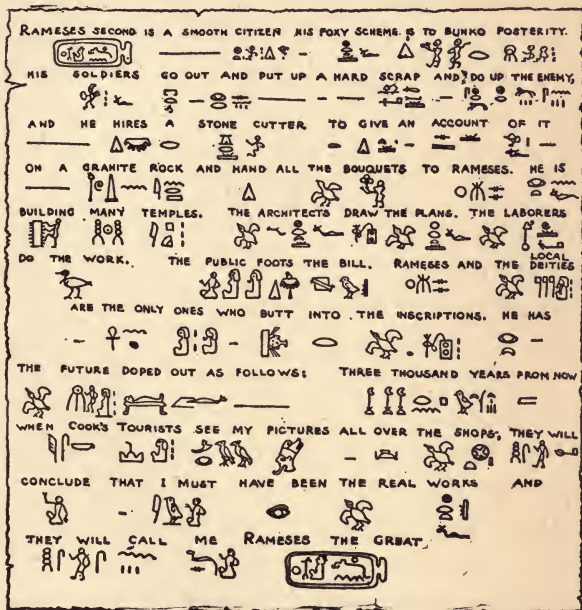 RAMESES SECOND IS A SMOOTH CITIZEN HIS FOXY SCHEME IS TO BUNKO POSTERITY.
HIS SOLDIERS GO OUT AND PUT UP A HARD SCRAP AND DO UP THE ENEMY,
AND HE HIRES A STONE CUTTER TO GIVE AN ACCOUNT OF IT
ON A GRANITE ROCK AND HAND ALL THE BOUQUETS TO RAMESES. HE IS
BUILDING MANY TEMPLES. THE ARCHITECTS DRAW THE PLANS. THE LABORERS
DO THE WORK. THE PUBLIC FOOTS THE BILL. RAMESES AND THE LOCAL DEITIES
ARE THE ONLY ONES WHO BUTT INTO THE INSCRIPTIONS. HE HAS
THE FUTURE DOPED OUT AS FOLLOWS: THREE THOUSAND YEARS FROM NOW
WHEN COOK'S TOURISTS SEE MY PICTURES ALL OVER THE SHOPS, THEY WILL
CONCLUDE THAT I MUST HAVE BEEN THE REAL WORKS AND
THEY WILL CALL ME RAMESES THE GREAT.